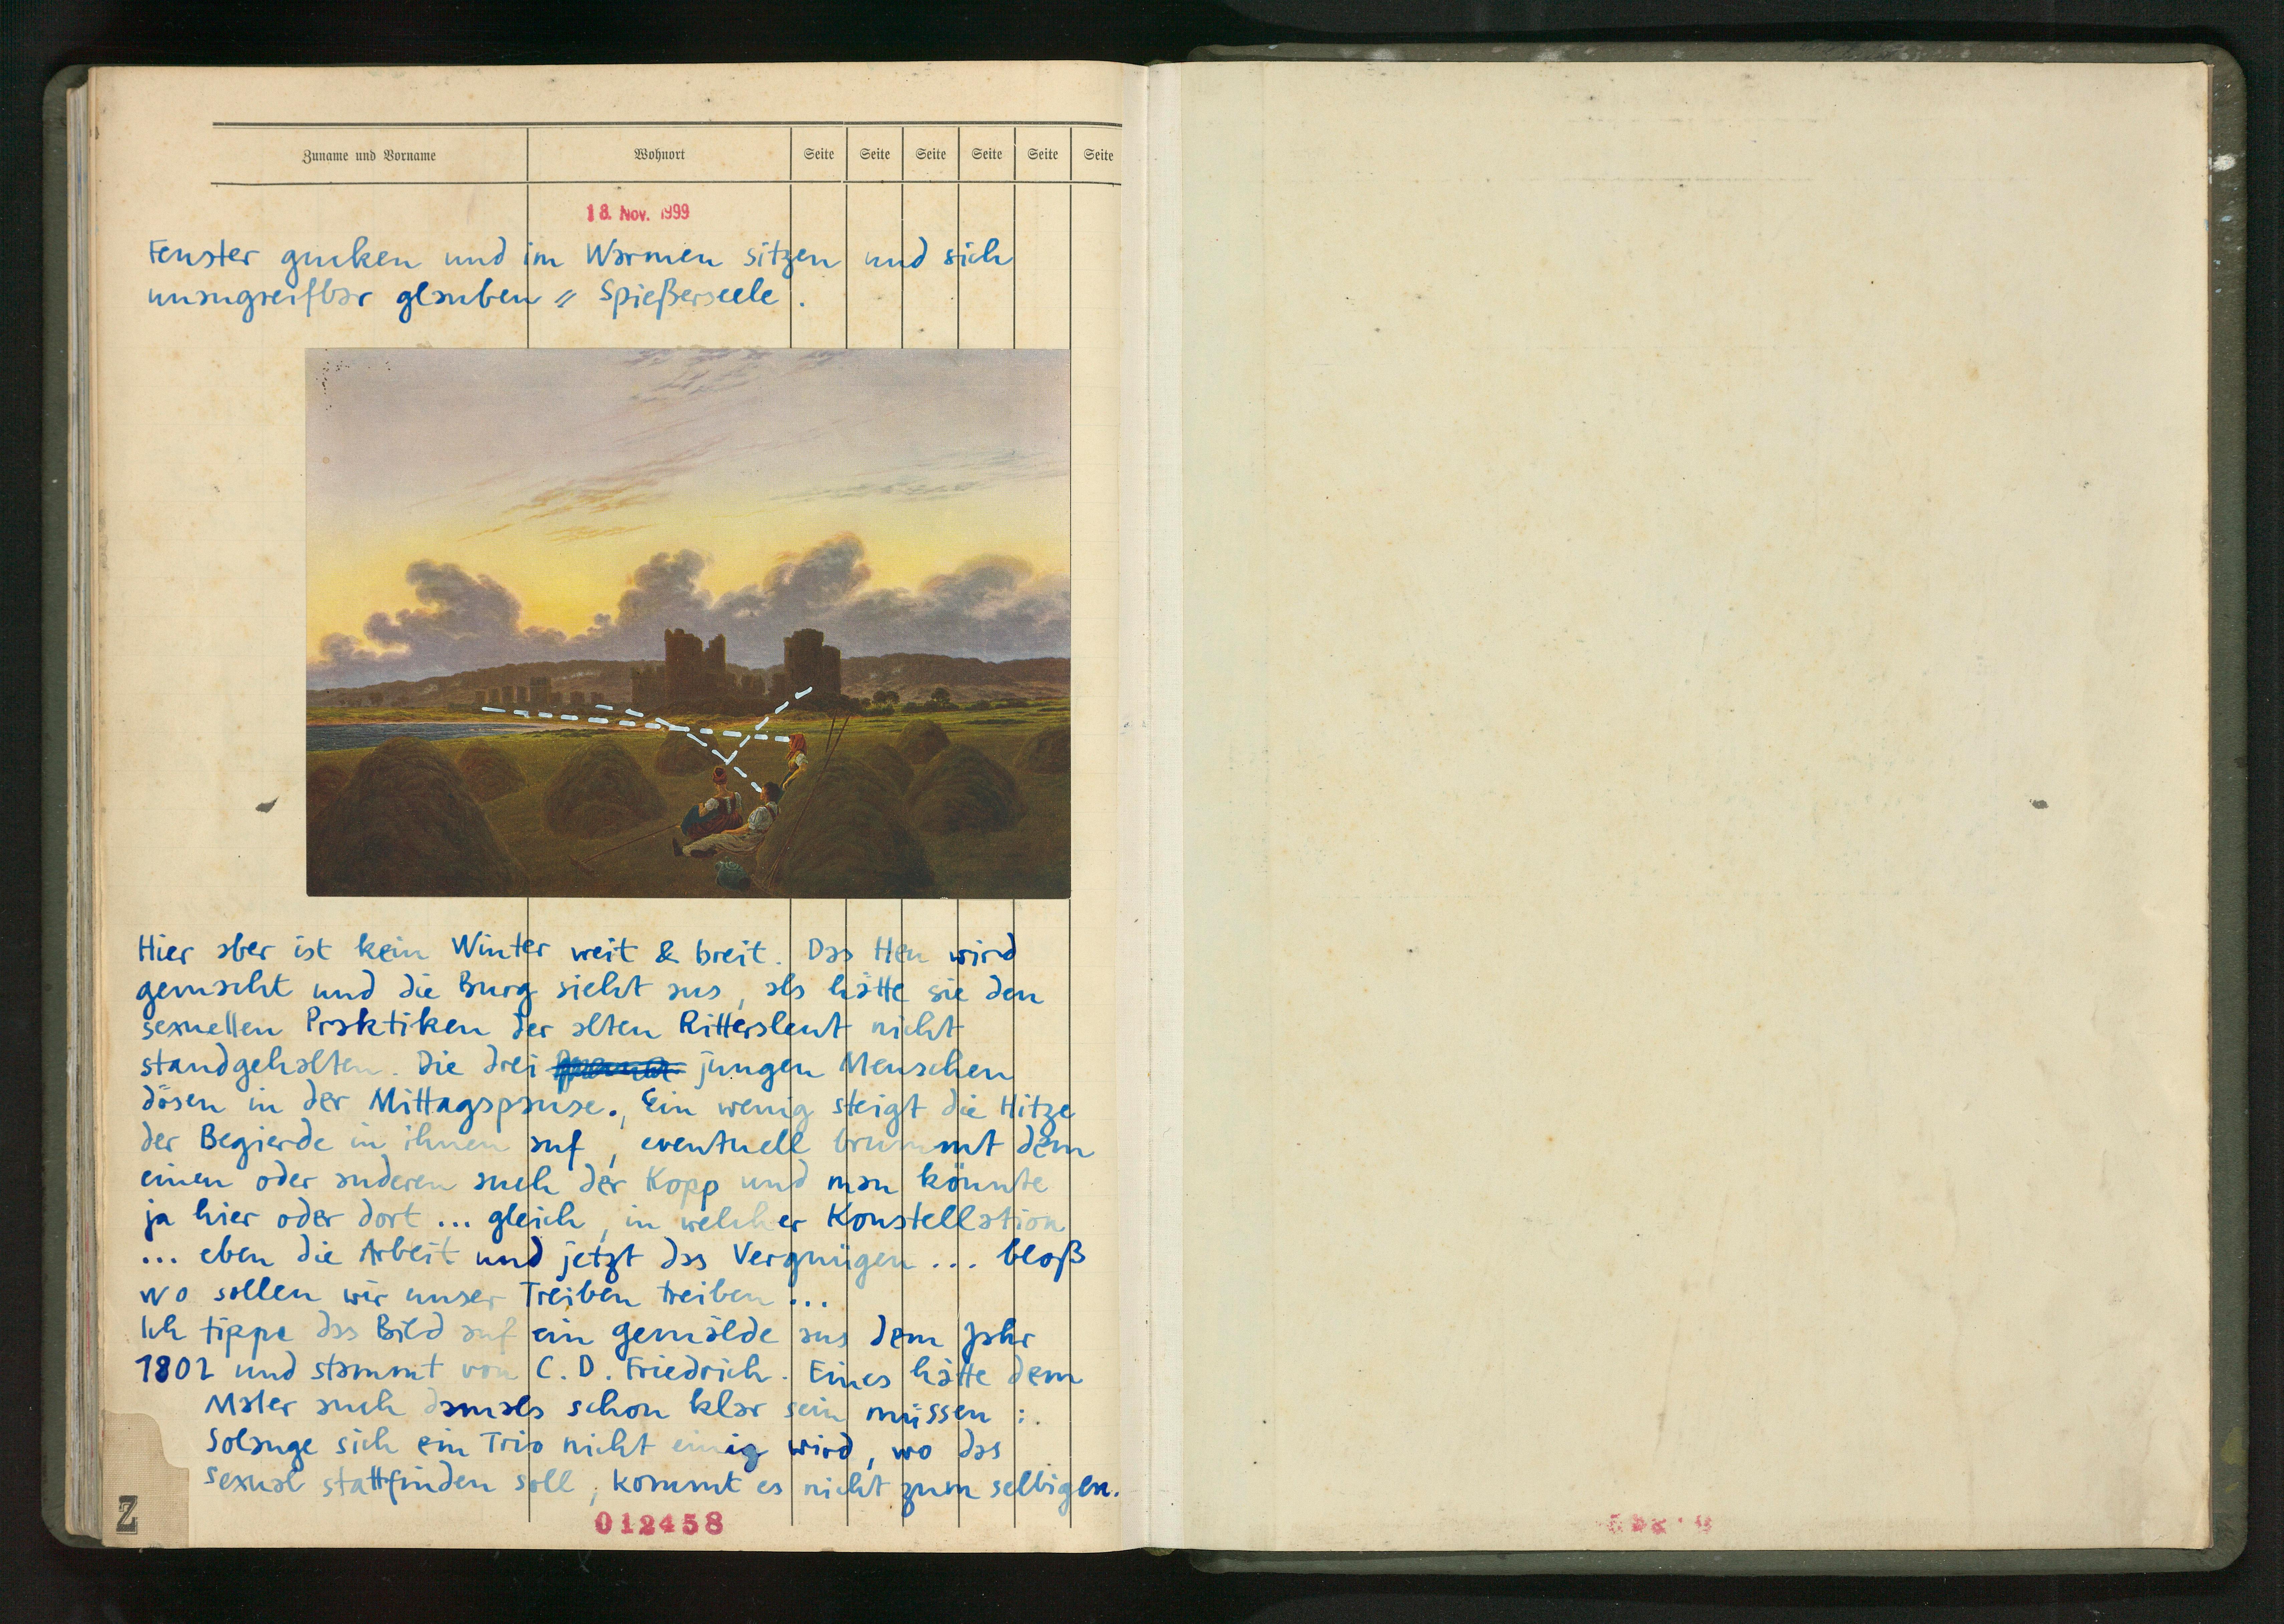 Zuname und Vorname Wohnort Seite Seite Seite Seite Seite Seite
18. Nov. 1999
Fenster gucken und im Warmen sitzen und sich
unangreifbar glauben = Spießerseele.
Hier aber ist kein Winter weit & breit. Das Heu wird
gemacht und die Burg sieht aus, als hätte sie den
sexuellen Praktiken der alten Rittersleut nicht
standgehalten. Die drei jungen Menschen
dösen in der Mittagspause., Ein wenig steigt die Hitze
der Begierde in ihnen auf, eventuell brummt dem
einen oder anderen auch der Kopp und man könnte
ja hier oder dort ... gleich, in welcher Konstellation
... eben die Arbeit und jetzt das Vergnügen ... bloß
wo sollen wir unser Treiben treiben ...
Ich tippe das Bild auf ein gemälde aus dem Jahr
1802 und stammt von C. D. Friedrich. Eines hätte dem
Maler auch damals schon klar sein müssen :
Solange sich ein Trio nicht einig wird, wo das
Sexual stattfinden soll, kommt es nicht zum selbigen.
Z
012458